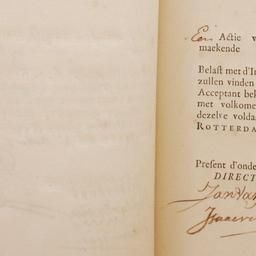 Een Actie v
maekende
Belast met d'I
zullen vinden
Acceptant bek
met volkome
dezelve volda
ROTTERDA
Present d'onde
DIRECT
Jan Van